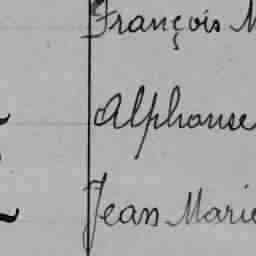 François M
Alphonse
Jean Marie